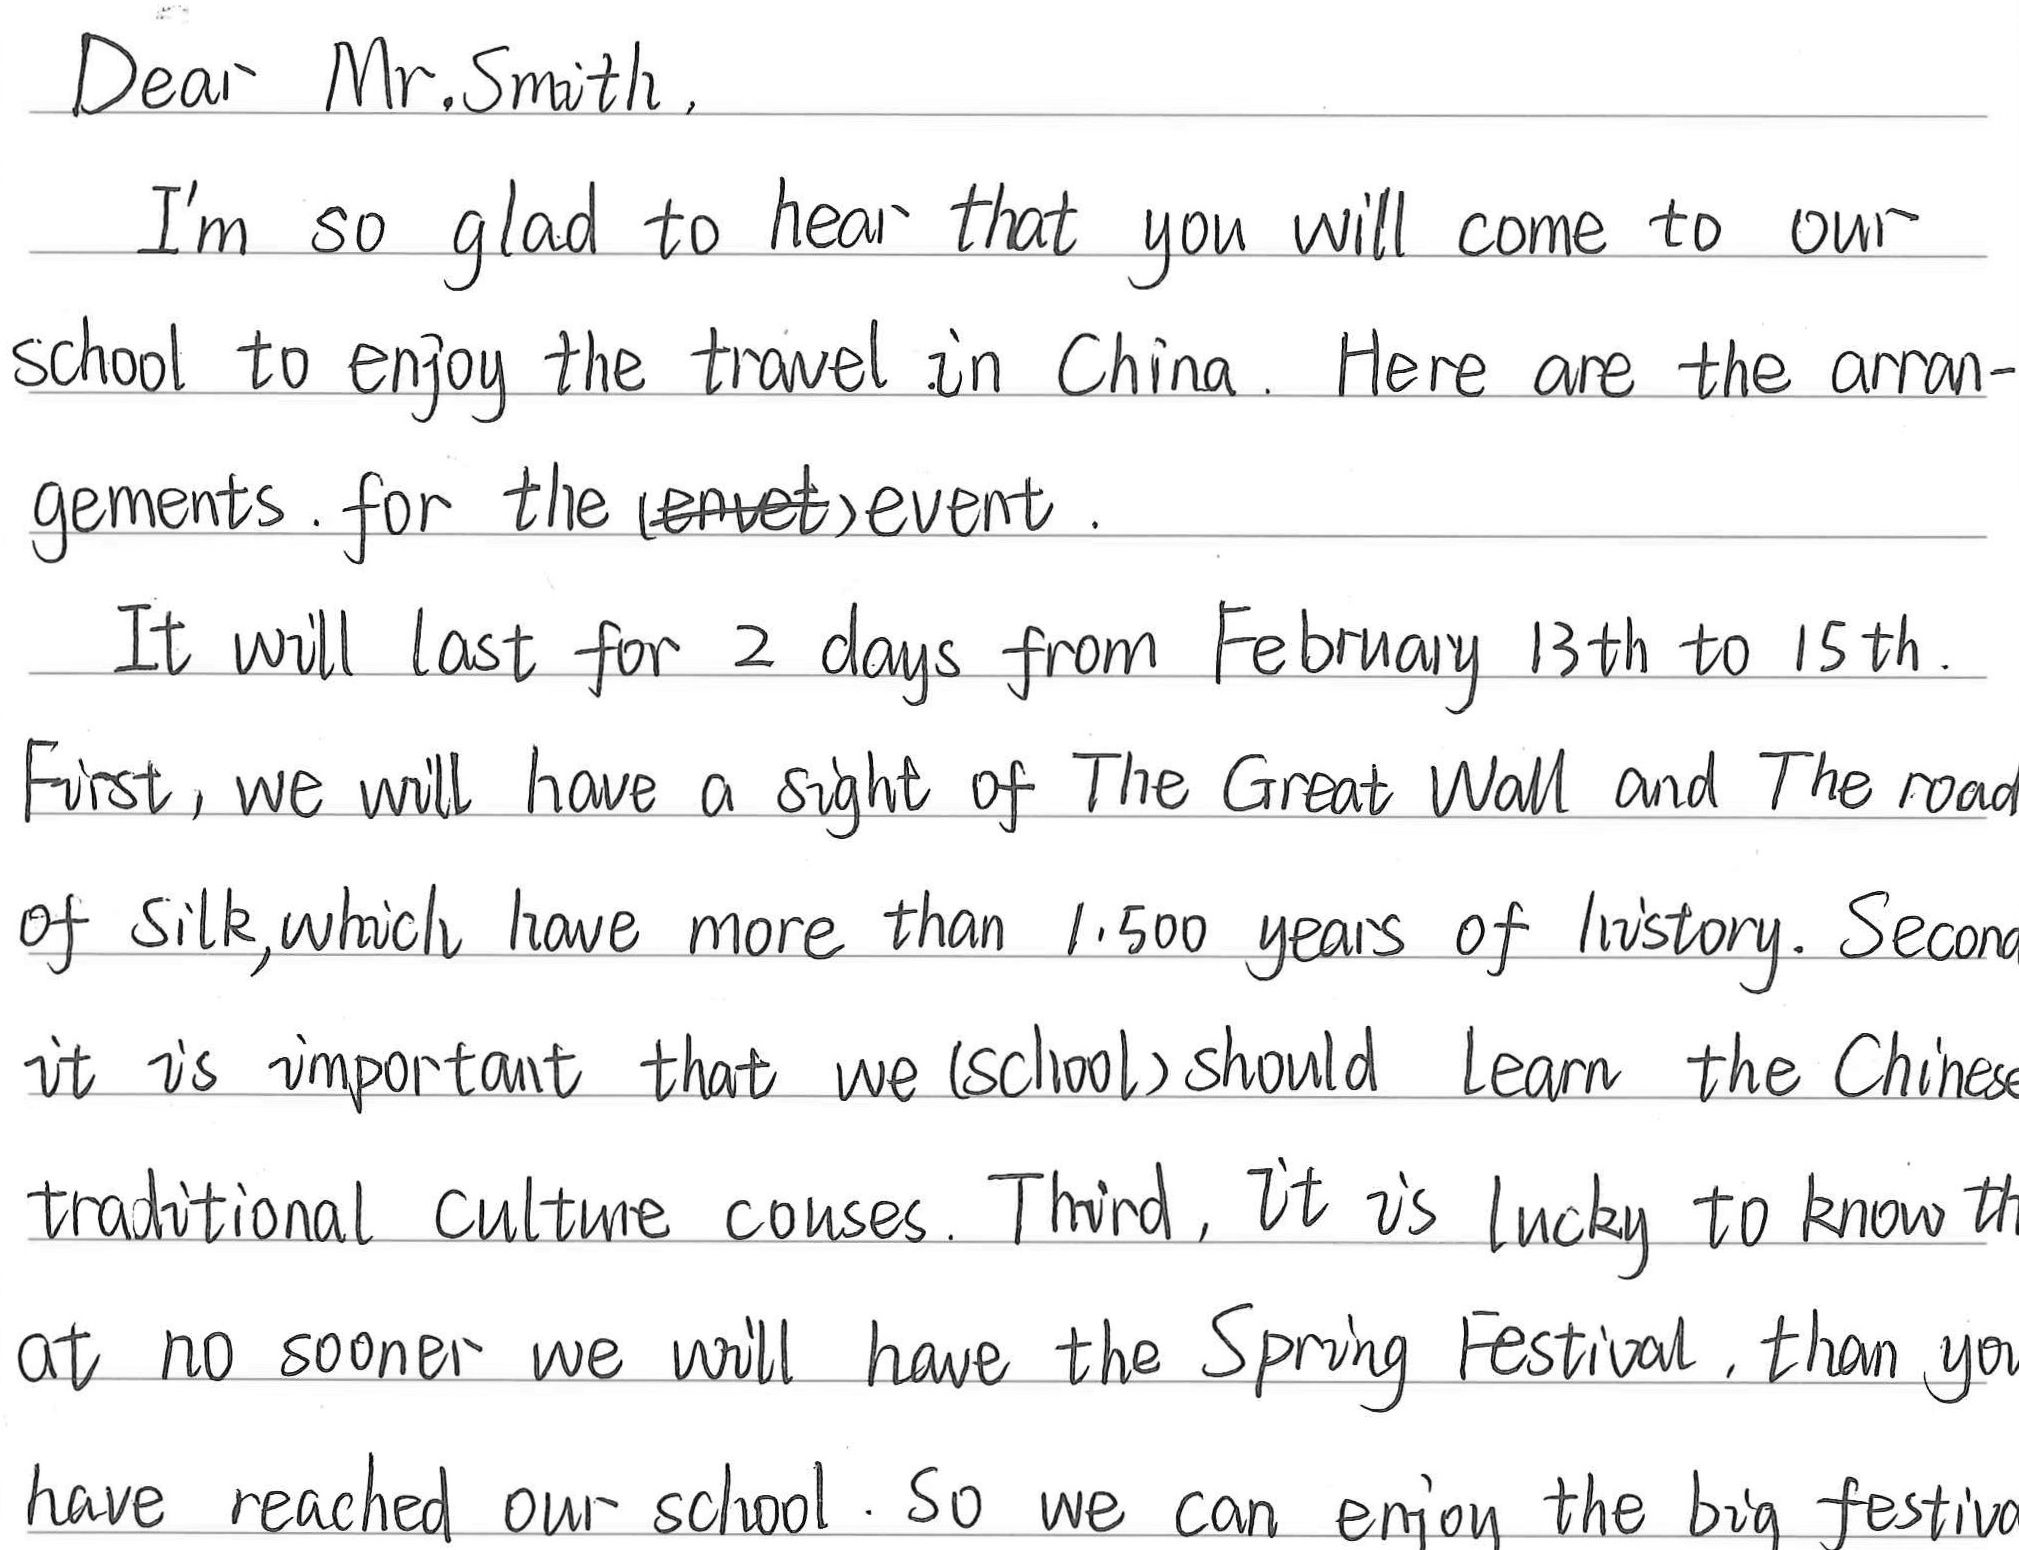 Dear Mr.Smith,
I'm so glad to hear that you will come to our
school to enjoy the travel in China. Here are the arran-
gements. for the (envet) event.
It will last for 2 days from February 13th to 15th.
First, we will have a sight of The Great Wall and The road
of Silk, which have more than 1.500 years of history. Second
it is important that we (school) should learn the Chinese
traditional culture couses. Third, it is lucky to know th
at no sooner we will have the Spring Festival, than you
have reached our school. So we can enjoy the big festiva